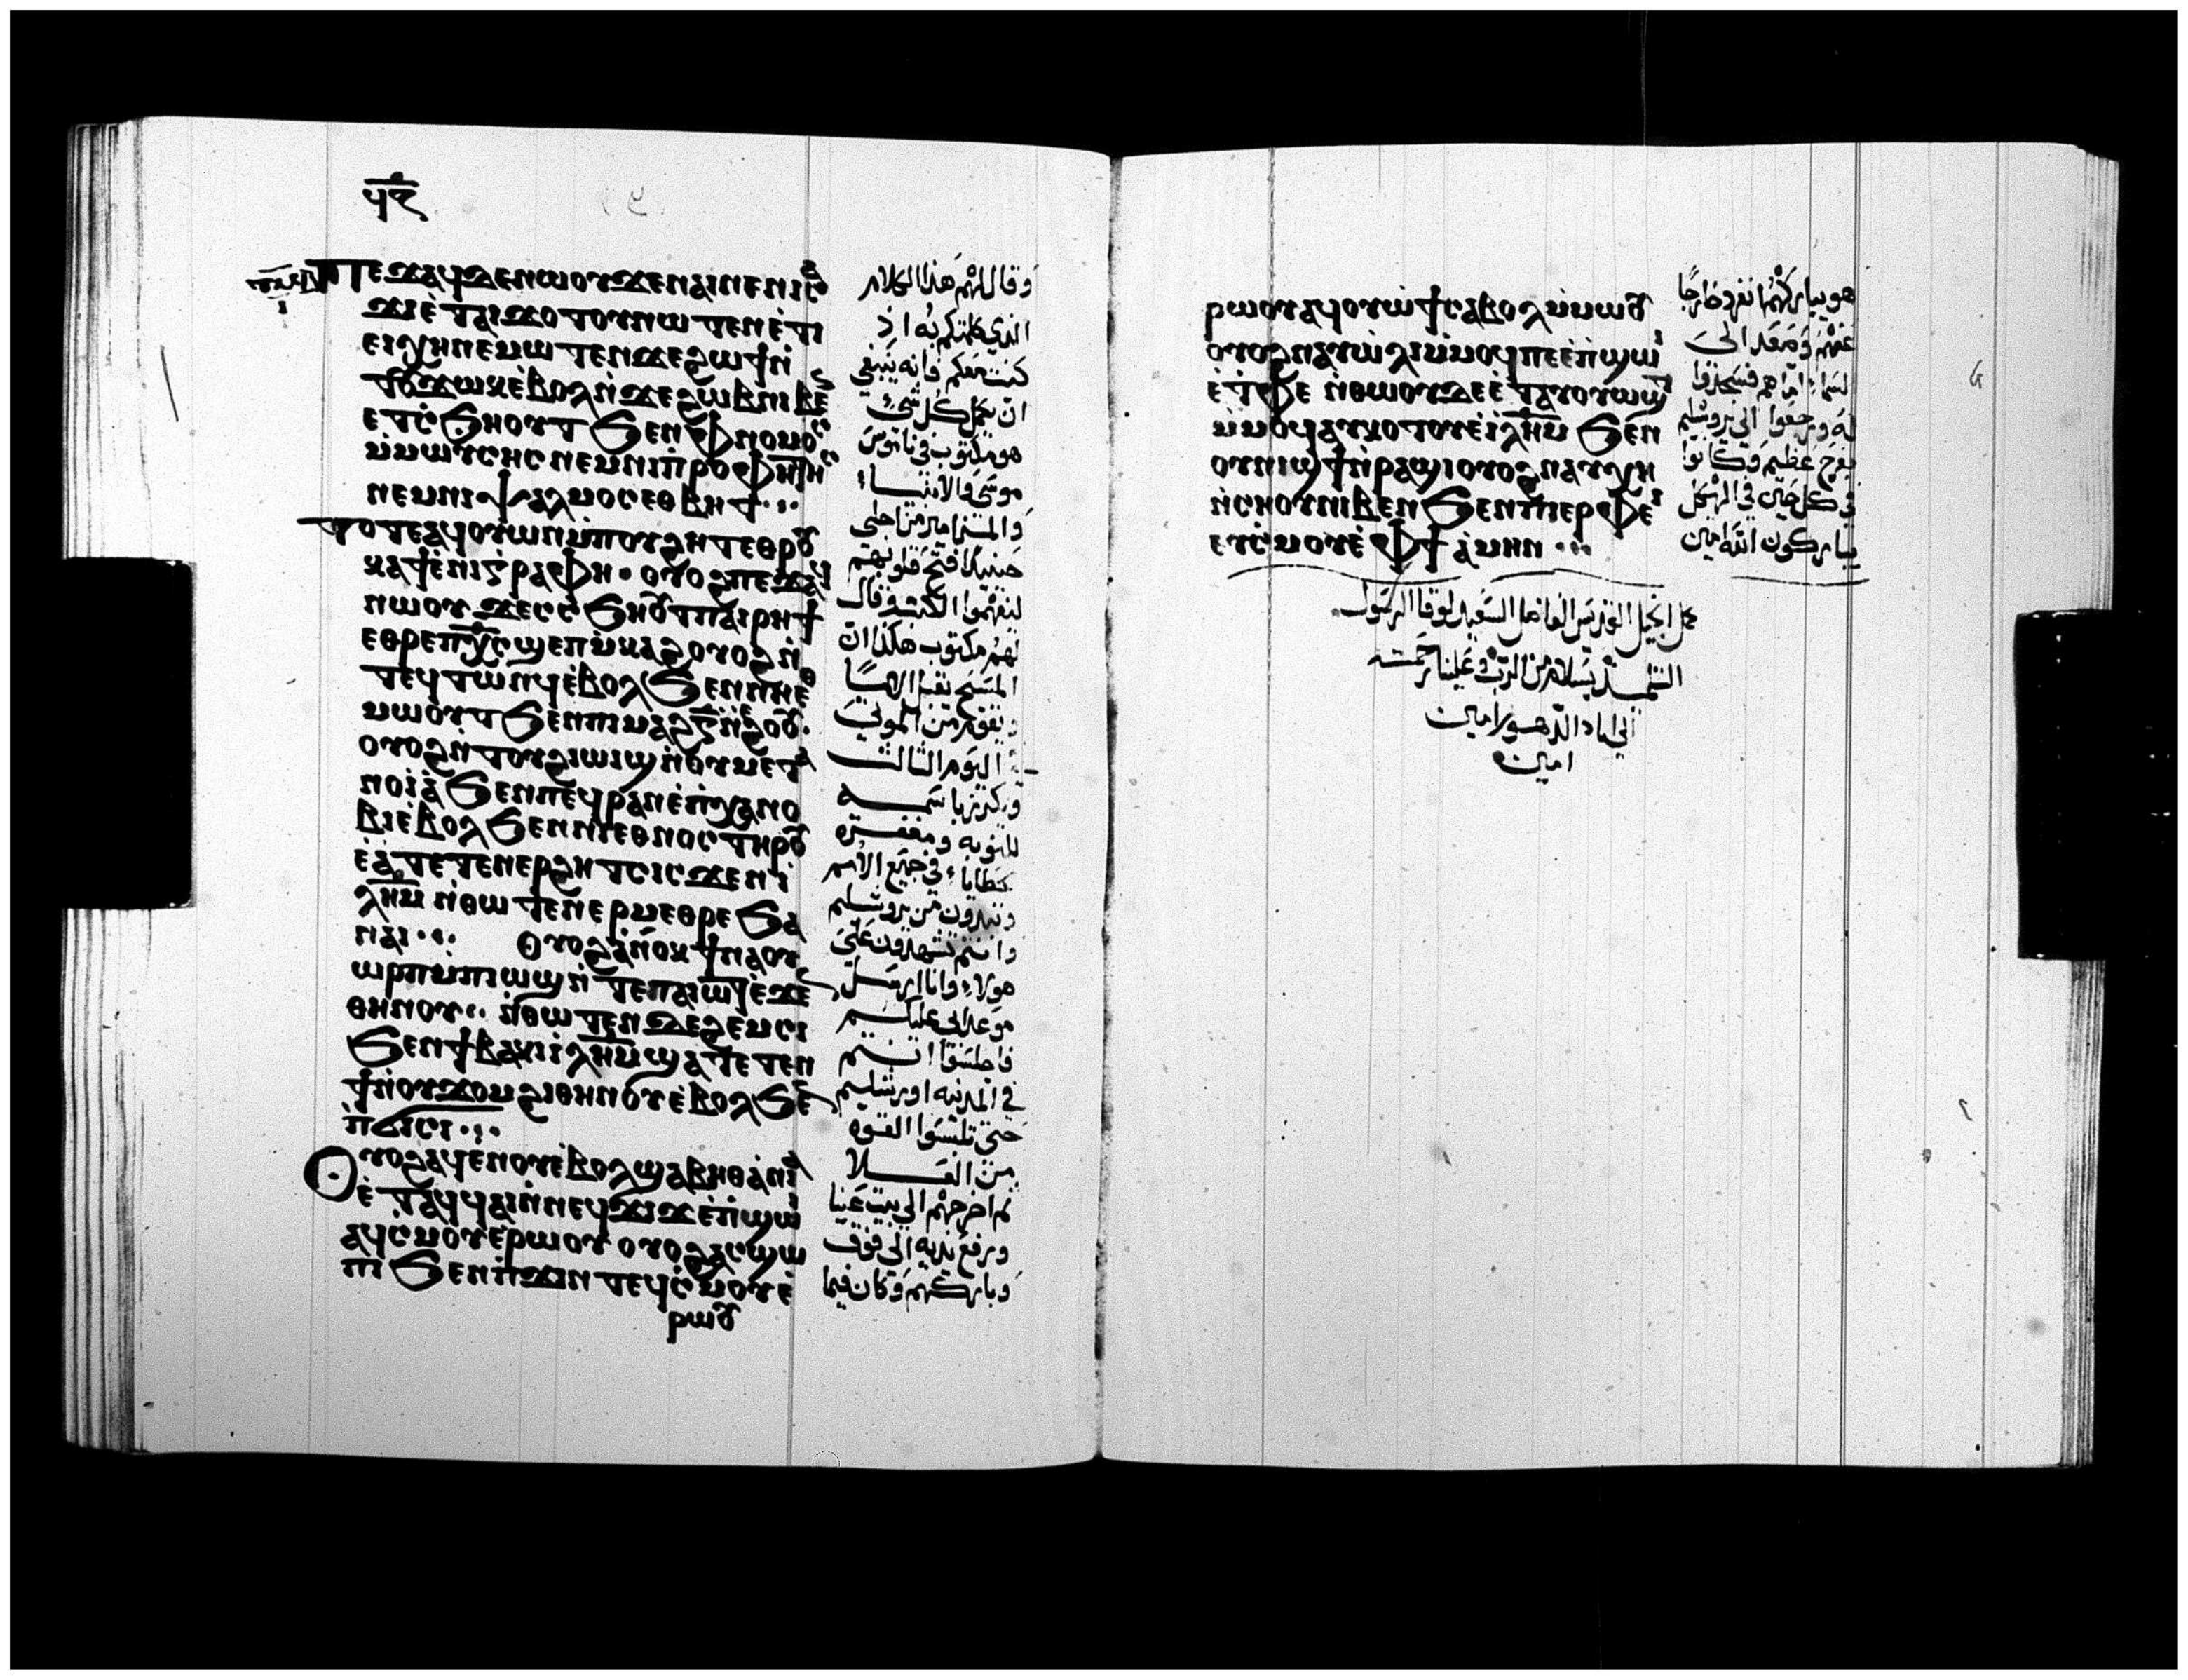 ϥⲋ
ⲡⲉϫⲁϥⲇⲉⲛⲱⲟⲩϫⲉⲛⲁⲓⲛⲉⲛⲓⲥⲁ
ϫⲓⲉ̀ⲧⲁⲓϫⲟⲧⲟⲩⲛⲱⲧⲉⲛⲉ̀ⲧⲓ
ⲉⲓⲭⲏⲛⲉⲙⲱⲧⲉⲛϫⲉϩⲱϯⲛ̀
ⲧⲟⲩϫⲱⲕⲉ̀ⲃⲟⲗⲛ̀ϫⲉϩⲱⲃⲛⲓⲃⲉⲛ
ⲉⲧⲥ̀ϧⲏⲟⲩⲧϧⲉⲛⲫⲛⲟⲙⲟⲥ
ⲙ̀ⲙⲱⲩⲥⲏⲥⲛⲉⲙⲛⲓⲡⲣⲟⲫⲏⲧⲏⲥ
ⲛⲉⲙⲛⲓⲯⲁⲗⲙⲟⲥⲉⲑⲃⲏⲧ
ⲧⲟⲧⲉⲁϥⲟⲩⲱⲛⲙ̀ⲡⲟⲩϩⲏⲧⲉⲑⲣⲟⲩ
ⲕⲁϯⲉ̀ⲛⲓⲅⲣⲁⲫⲏ · ⲟⲩⲟϩⲡⲉϫⲁϥ
ⲛⲱⲟⲩϫⲉⲥⲥ̀ϧⲏⲟⲩⲧⲡⲁⲓⲣⲏϯ
ⲉⲑⲣⲉⲡⲭ̅ⲥ̅ϣⲉⲡⲙ̀ⲕⲁϩⲟⲩⲟϩⲛ̀
ⲧⲉϥⲧⲱⲛϥⲉ̀ⲃⲟⲗϧⲉⲛⲛⲏⲉⲑ
ⲙⲱⲟⲩⲧϧⲉⲛⲡⲓⲙⲁϩⲅ̅ⲛ̀ⲉ̀ϩⲟⲟⲩ·
ⲟⲩⲟϩⲛ̀ⲧⲟⲩϩⲓⲱⲓϣⲛ̀ⲟⲩⲙⲉⲧⲁ
ⲛⲟⲓⲁ̀ϧⲉⲛⲡⲉϥⲣⲁⲛⲉ̀ⲡ̀ⲭⲁⲛⲟ
ⲃⲓⲉ̀ⲃⲟⲗϧⲉⲛⲛⲓⲉⲑⲛⲟⲥⲧⲏⲣⲟⲩ
ⲉ̀ⲁ̀ⲧⲉⲧⲉⲛⲉⲣϩⲏⲧⲥⲓⲥϫⲉⲛⲓ̀
ⲗⲏⲙ ⲛ̀ⲑⲱⲧⲉⲛⲉⲣⲙⲉⲑⲣⲉϧⲁ
ⲛⲁⲓ ⲟⲩⲟϩⲁ̀ⲛⲟⲕϯⲛⲁⲟⲩ
ⲱⲣⲡⲙ̀ⲡⲓⲱϣⲛ̀ⲧⲉⲡⲁⲓⲱⲧⲉ̀ϫⲉⲛ
ⲑⲏⲛⲟⲩ ⲛ̀ⲑⲱⲧⲉⲛⲇⲉϩⲉⲙⲥⲓ
ϧⲉⲛϯⲃⲁⲕⲓⲓ̀ⲗⲏⲙϣⲁⲧⲉⲧⲉⲛ
ϯⲛ̀ⲟⲩϫⲟⲙϩⲓⲑⲏⲛⲟⲩⲉ̀ⲃⲟⲗϧⲉⲛ
ⲡ̀ϭⲓⲥⲓ
ⲟⲩⲟϩⲁϥⲉⲛⲟⲩⲉ̀ⲃⲟⲗϣⲁⲃⲏⲑⲁ̀ⲛⲓⲁ
ⲉ̀ⲧⲁϥϥⲁⲓⲛ̀ⲛⲉϥϫⲓϫⲉ̀ⲡ̀ϣⲱⲓ
ⲁϥⲥⲙⲟⲩⲉ̀ⲣⲱⲟⲩ ⲟⲩⲟϩⲁⲥϣⲱ
ⲡⲓϧⲉⲛⲡ̀ϫⲓⲛⲧⲉϥⲥ̀ⲙⲟⲩⲉ̀
ⲣⲱⲟⲩ
وقال لهم هذا الكلام
الذي كلمتكم به اذ
كنت معكم فانه ينبغي
ان يكمل كل شيء
هو مكتوب في ناموس
موسى والانبياء
والمزامير من اجلي
حينيذ فتح قلوبهم
ليفهموا الكتب وقال
لهم مكتوب هكذا ان
المسيح يقبل الامًا
ويقوم من الموتى
اليوم الثالث
ويكرز باسمه
للتوبه ومغفرة
خطايا في جميع الامم
وتبدون من يروشليم
وانتم تشهدون على
هولاء وانا ارسل
موعد ابي عليكم
فاجلسوا انتم
في المدينه اورشليم
حتى تلبسوا القوه
من العلا
ثم اخرجهم الى بيت عنيا
ورفع يديه الى فوق
وباركهم وكان فيما
ⲣⲱⲟⲩⲁϥⲟⲩⲱ̀ϯⲥⲁⲃⲟⲗⲙ̀ⲙⲱⲟⲩ
ⲟⲩⲟϩⲛⲁⲩⲱ̀ⲗⲓⲙ̀ⲙⲟϥⲡⲉⲉ̀ⲡ̀ϣⲱⲓ
ⲉ̀ⲧ̀ⲫⲉ ⲛ̀ⲑⲱⲟⲩⲇⲉⲉ̀ⲧⲁⲩⲟⲩⲱϣⲧ
ⲙ̀ⲙⲟϥⲁⲩⲕⲟⲧⲟⲩⲉ̀ⲓ̀ⲗⲏⲙ ϧⲉⲛ
ⲟⲩⲛⲓϣϯⲛ̀ⲣⲁϣⲓⲟⲩⲟϩⲛⲁⲩⲭⲏ
ⲛ̀ⲥⲏⲟⲩⲛⲓⲃⲉⲛϧⲉⲛⲡⲓⲉⲣⲫⲉⲓ
ⲉⲩⲥ̀ⲙⲟⲩⲉ̀ⲫϯ ⲁ̀ⲙⲏⲛ
هو يباركهم انفرد خارجًا
عنهم وصعد الى
السماء امّا هم فسجدوا
له ورجعوا الى يروشليم
بفرح عظيم وكانوا
في كل حين في الهيكل
يباركون الله امين
كمل انجيل القديس الفاضل السعيد لوقا الرسول
التلميذ بسلام من الرب وعلينا رحمته
الى اباد الدهور امين
امين